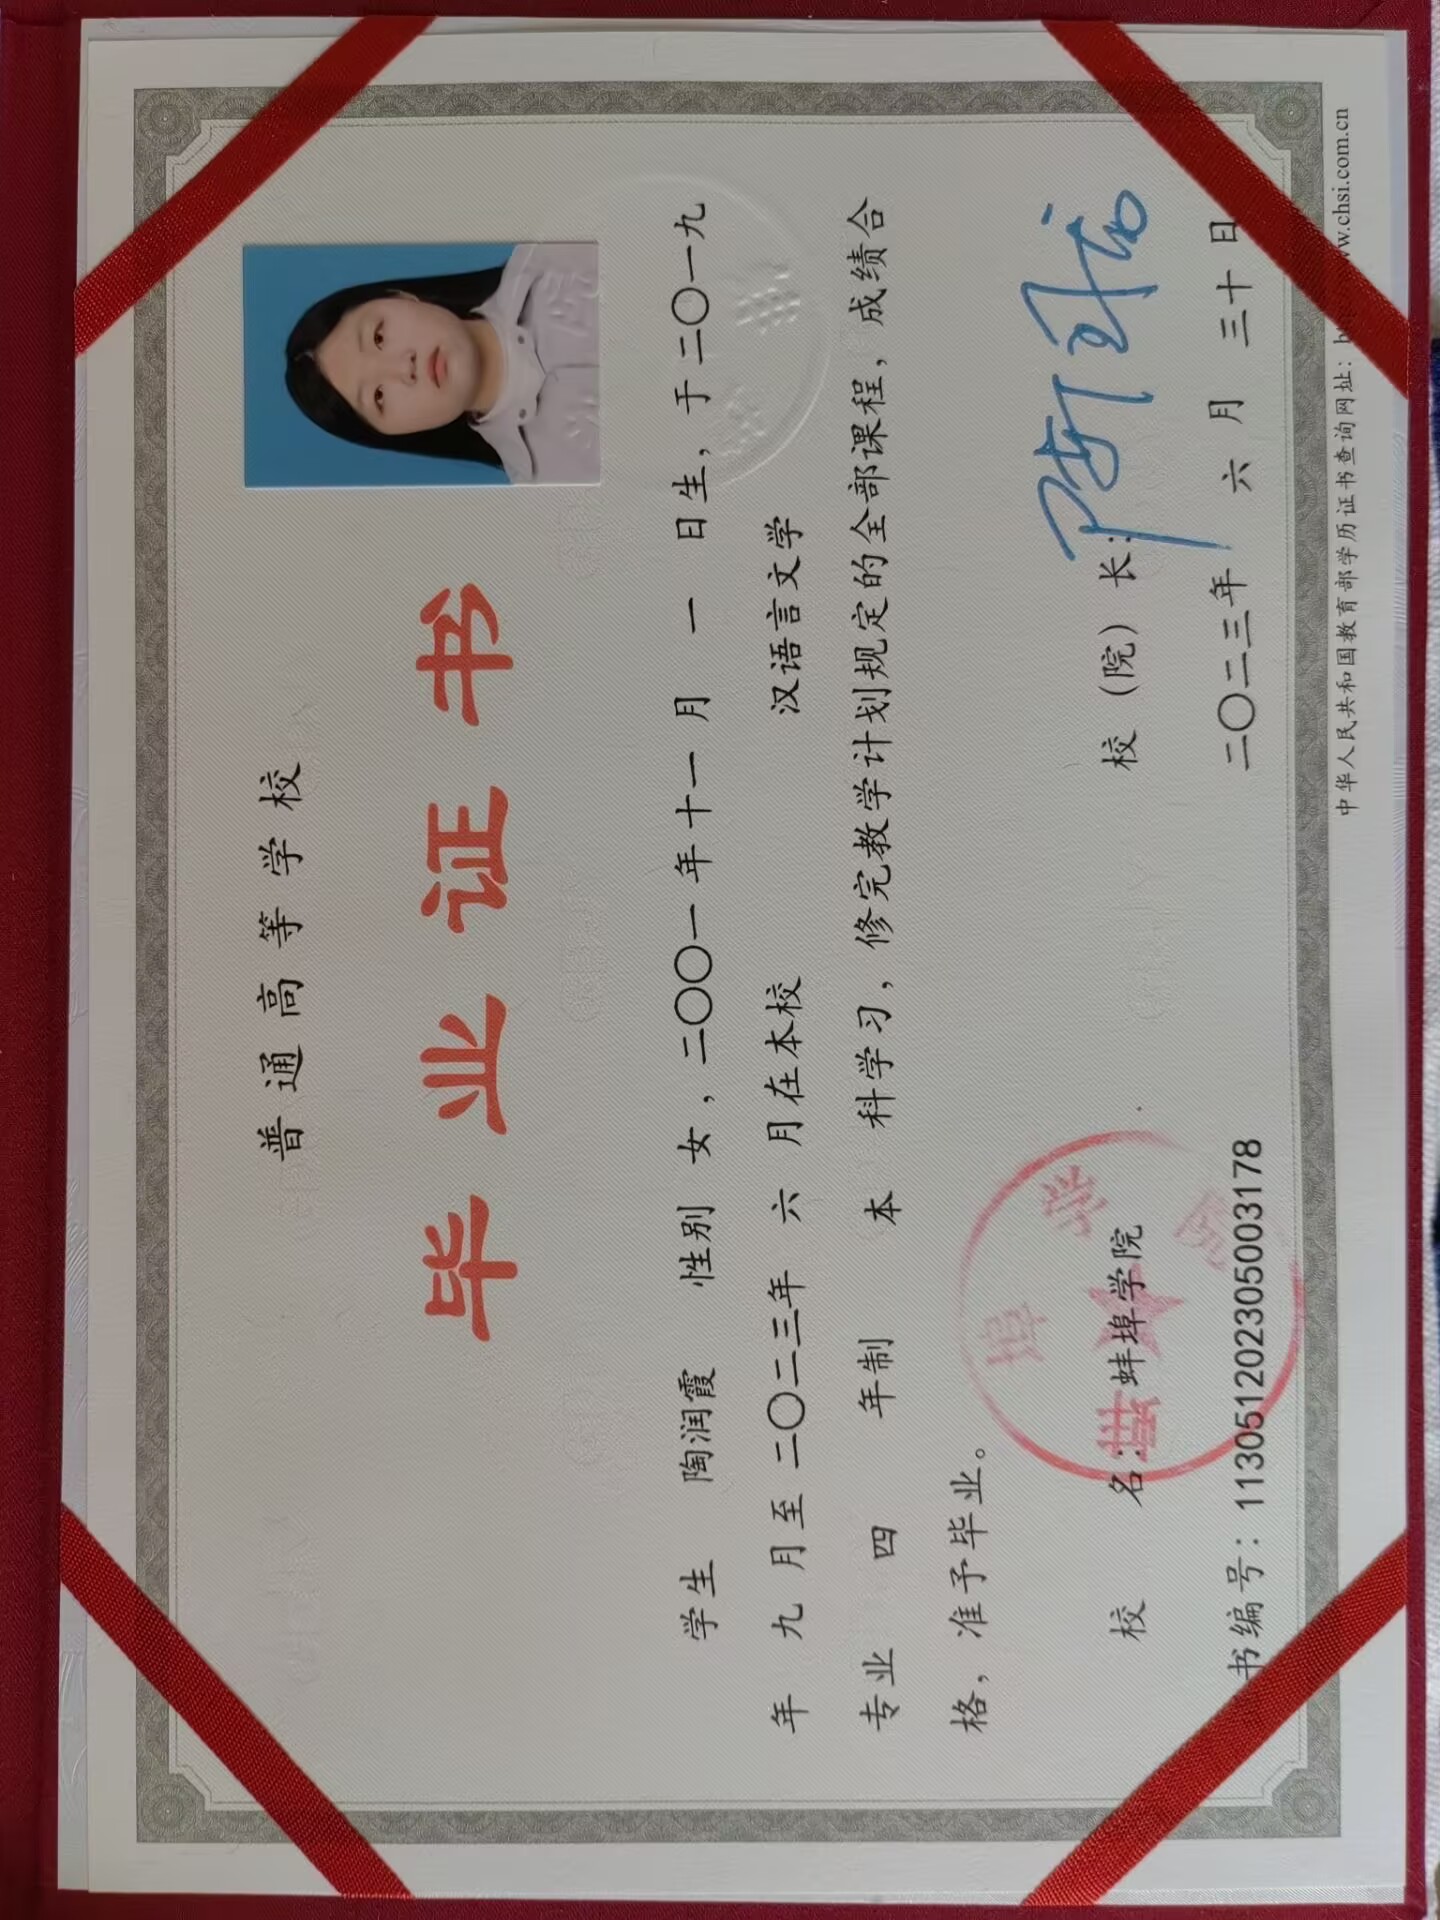 普通高等学校
毕业证书
学生 陶润霞 性别 女，二〇〇一年十一月 一 日生，于二〇一九
年 九 月至二〇二三年 六 月在本校 汉语言文学
专业 四 年制 本 科学习，修完教学计划规定的全部课程，成绩合
格，准予毕业。
校 名：蚌埠学院
校（院）长：
蚌埠学院
书编号：113051202305003178
二〇二三年 六 月 三十 日
中华人民共和国教育部学历证书查询网址：
w.chsi.com.cn